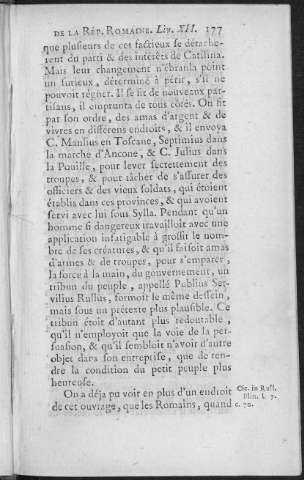 DE LA RÉP. ROMAINE. Liv. XII. 177
que plusieurs de cet factieux se détache-
rent du parti & des intérêts de Catilina.
Mais leur changement n'ébranla point
un furieux, déterminé à périr, s'il ne
pouvoit régner. Il se fit de nouveaux par-
tisans, il emprunta de tous côtés. On fit
par son ordre, des amas d'argent & de
vivres en différens endroits, & il envoya
C. Manlius en Toscane, Septimius dans
la marche d'Ancone, & C. Julius dans
la Pouille, pour lever secrettement des
troupes, & pour tâcher de s'assurer des
officiers & des vieux soldats, qui étoient
établis dans ces provinces, & qui avoient
servi avec lui sous Sylla. Pendant qu'un
homme si dangereux travailloit avec une
application infatigable à grossir le nom-
bre de ses créatures, & qu'il faisoit amas
d'armes & de troupes, pour s'emparer,
la force à la main, du gouvernement, un
tribun du peuple, appellé Publius Ser-
vilius Rullus, formoit le même dessein,
mais sous un prétexte plus plausible. Ce
tribun étoit d'autant plus redoutable,
qu'il n'employoit que la voie de la per-
suasion, & qu'il sembloit n'avoit d'autre
objet dans son entreprise, que de ten-
dre la condition du petit peuple plus
heureuse.
On a déja pu voir en plus d'un endroit
de cet ouvrage, que les Romains, quand
Cic. in Rull.
Plin. l. 7.
c. 70.